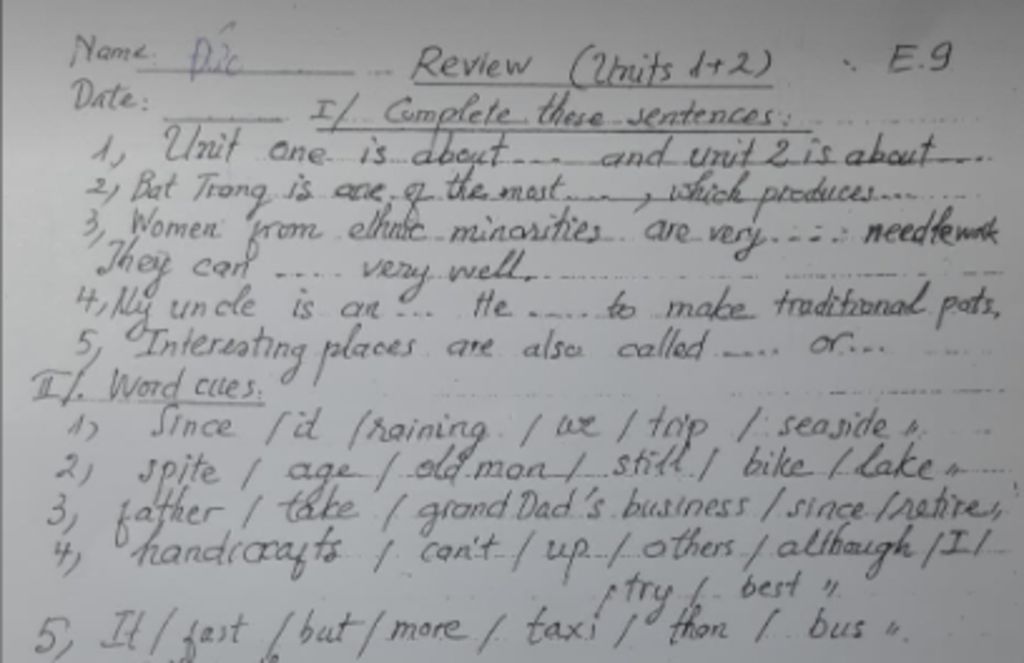 Name: Đức Review (Units 1+2) E.9
Date: I/ Complete these sentences:
1, Unit one is about .... and unit 2 is about ....
2, Bat Trang is one of the most ...., which produces ....
3, Women from ethnic minorities are very .... needlework
They can .... very well.
4, My uncle is an .... He .... to make traditional pots.
5, Interesting places are also called .... or ....
II/. Word cues:
1, Since / it / raining / we / trip / seaside ".
2, spite / age / old man / still / bike / lake "
3, father / take / grand Dad's business / since / retire "
4, handicrafts / can't / up / others / although / I /
try / best "
5, It / fast / but / more / taxi / than / bus ".